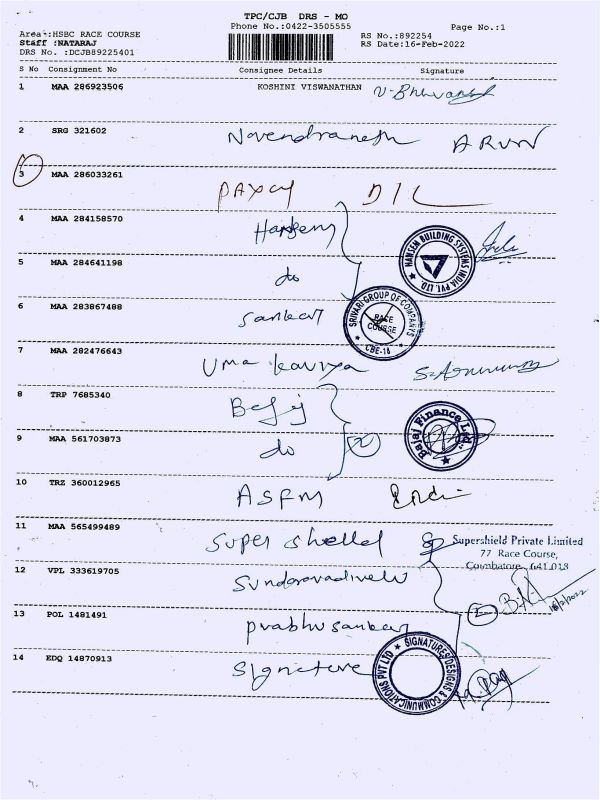 TPC/CJB DRS - MO
Phone No.:0422-3505555
Page No.:1
Area :HSBC RACE COURSE
Staff :NATARAJ
DRS No. :DCJB89225401
RS No.:892254
RS Date:16-Feb-2022
S No Consignment No Consignee Details Signature
1 MAA 286923506 KOSHINI VISWANATHAN
2 SRG 321602 ARUN
3 MAA 286033261 D/L
4 MAA 284158570
HANSEM BUILDING SYSTEMS INDIA PVT. LTD.
5 MAA 284641198 do
6 MAA 283867488 Sankar
SRIVARI GROUP OF COMPANYS
RACE COURSE
CBE-18
7 MAA 282476643 Uma kaviya
8 TRP 7685340
Bajaj Finance Ltd.
9 MAA 561703873 do 2
10 TRZ 360012965 ASFM
11 MAA 565499489 Super shelled
Supershield Private Limited
77 Race Course,
Coimbatore 641 018
12 VPL 333619705 Sundaravadivelu
16/2/2022
13 POL 1481491 prabhu sankar
14 EDQ 14870913 Signature
SIGNATURE DESIGNS & COMMUNICATIONS PVT LTD